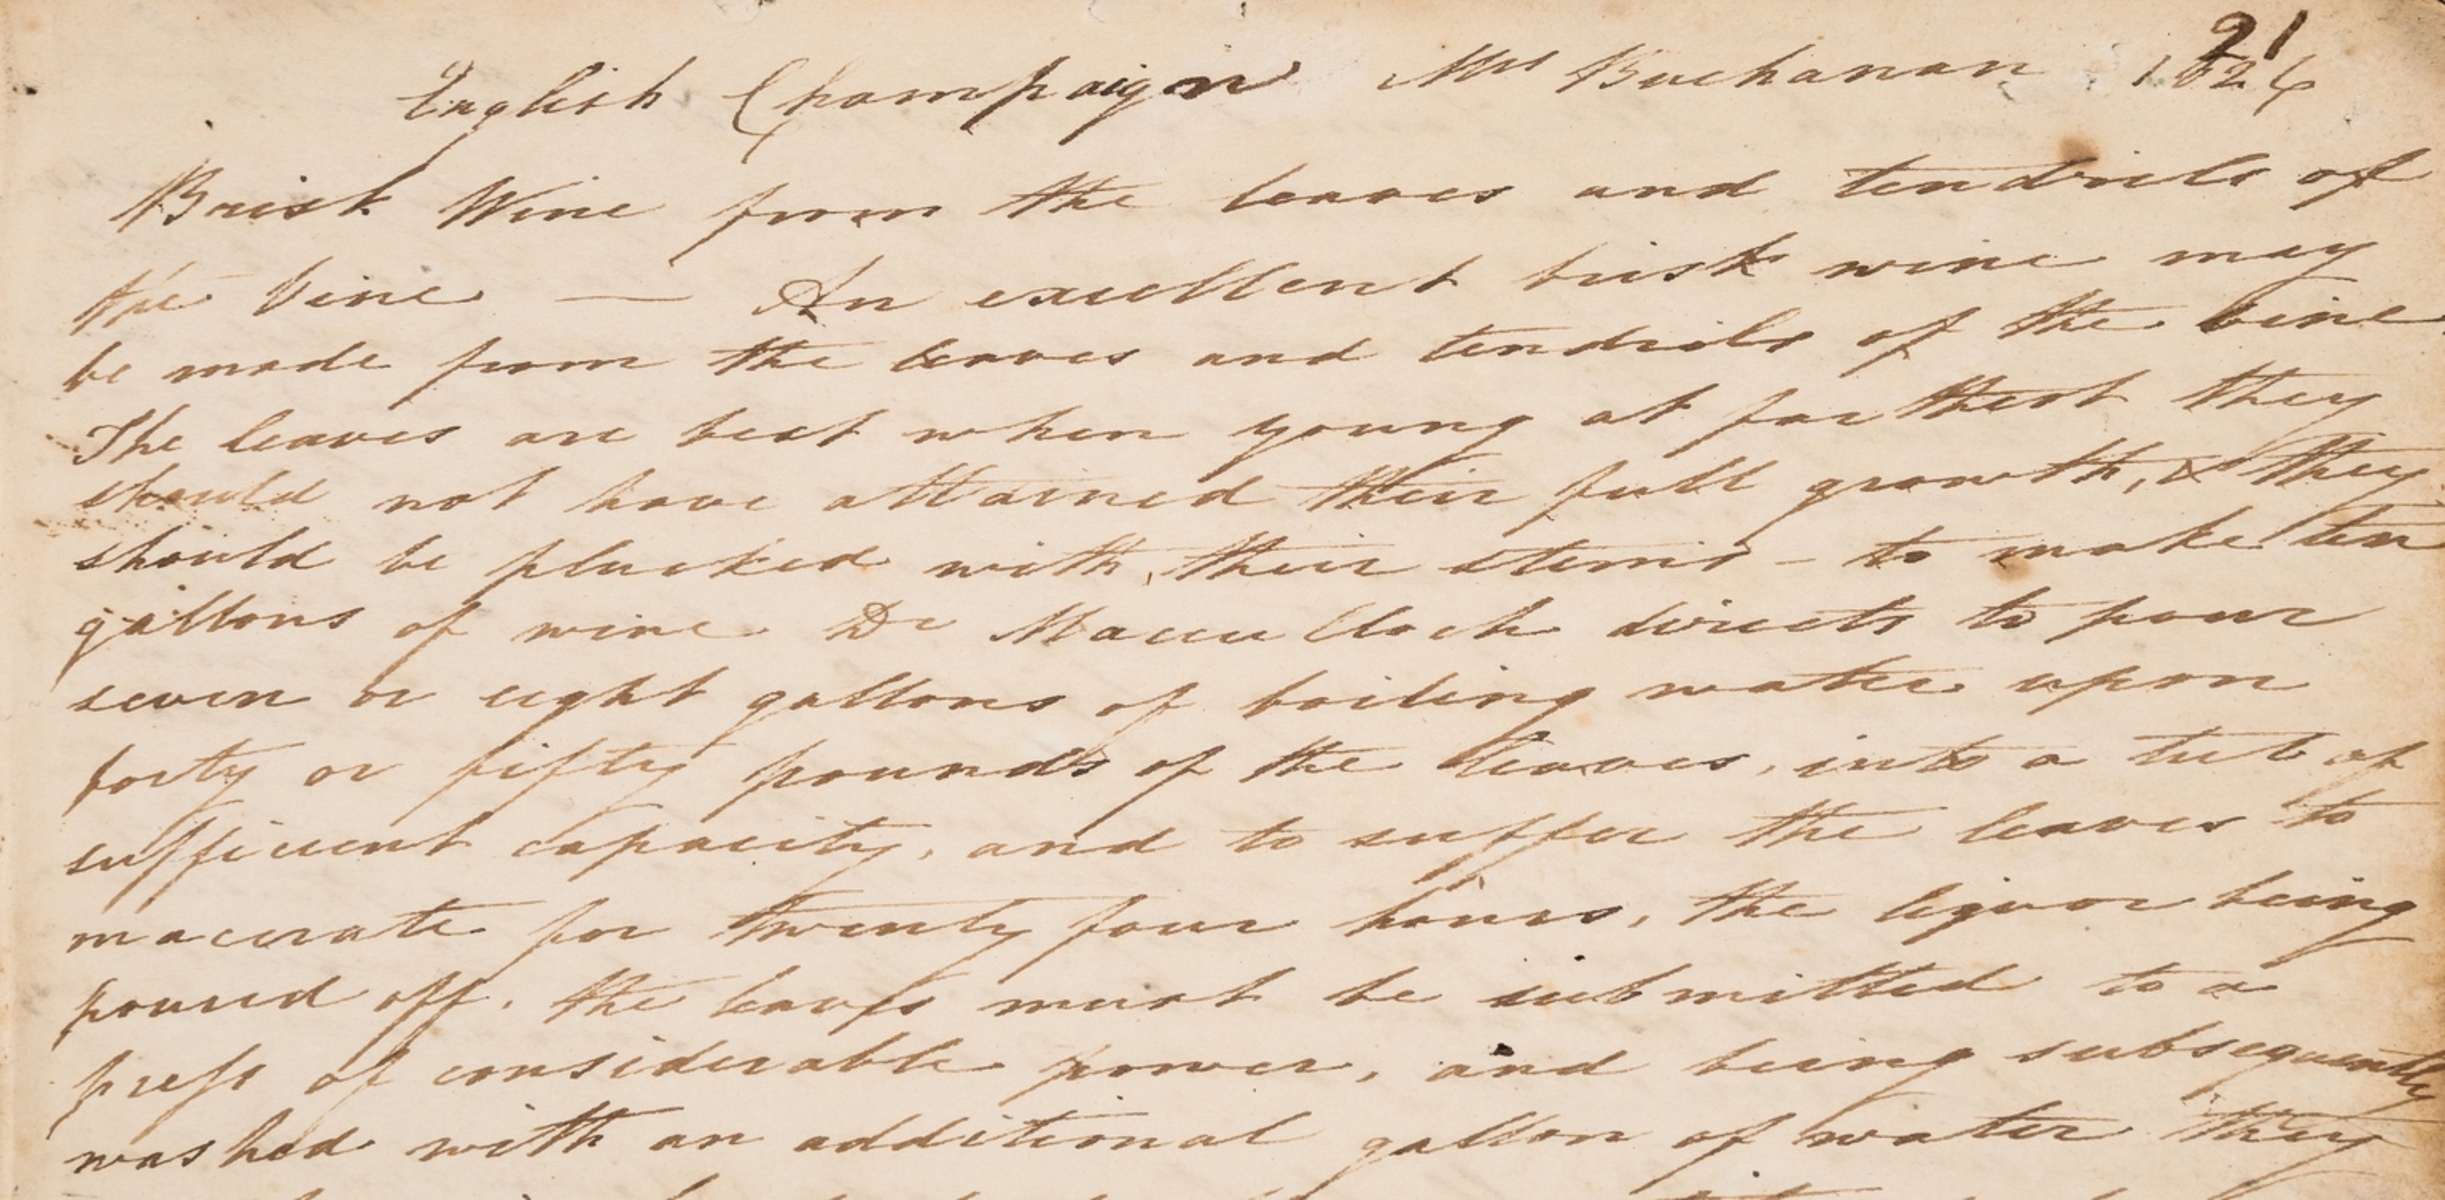 21
English Champaign Mrs Buchanan 1826
Brisk Wine from the leaves and tendrils of
the Vine — An excellent brisk wine may
be made from the leaves and tendrils of the vine
The leaves are best when young at farthest they
should not have attained their full growth, & they
should be plucked with their stems - to make ten
gallons of wine Dr Maccu lloch directs to pour
seven or eight gallons of boiling water upon
forty or fifty pounds of the leaves, into a tub of
sufficient capacity, and to suffer the leaves to
macerate for twenty four hours, the liquor being
poured off, the leaves must be submitted to a
press of considerable power, and being subsequently
washed with an additional gallon of water they